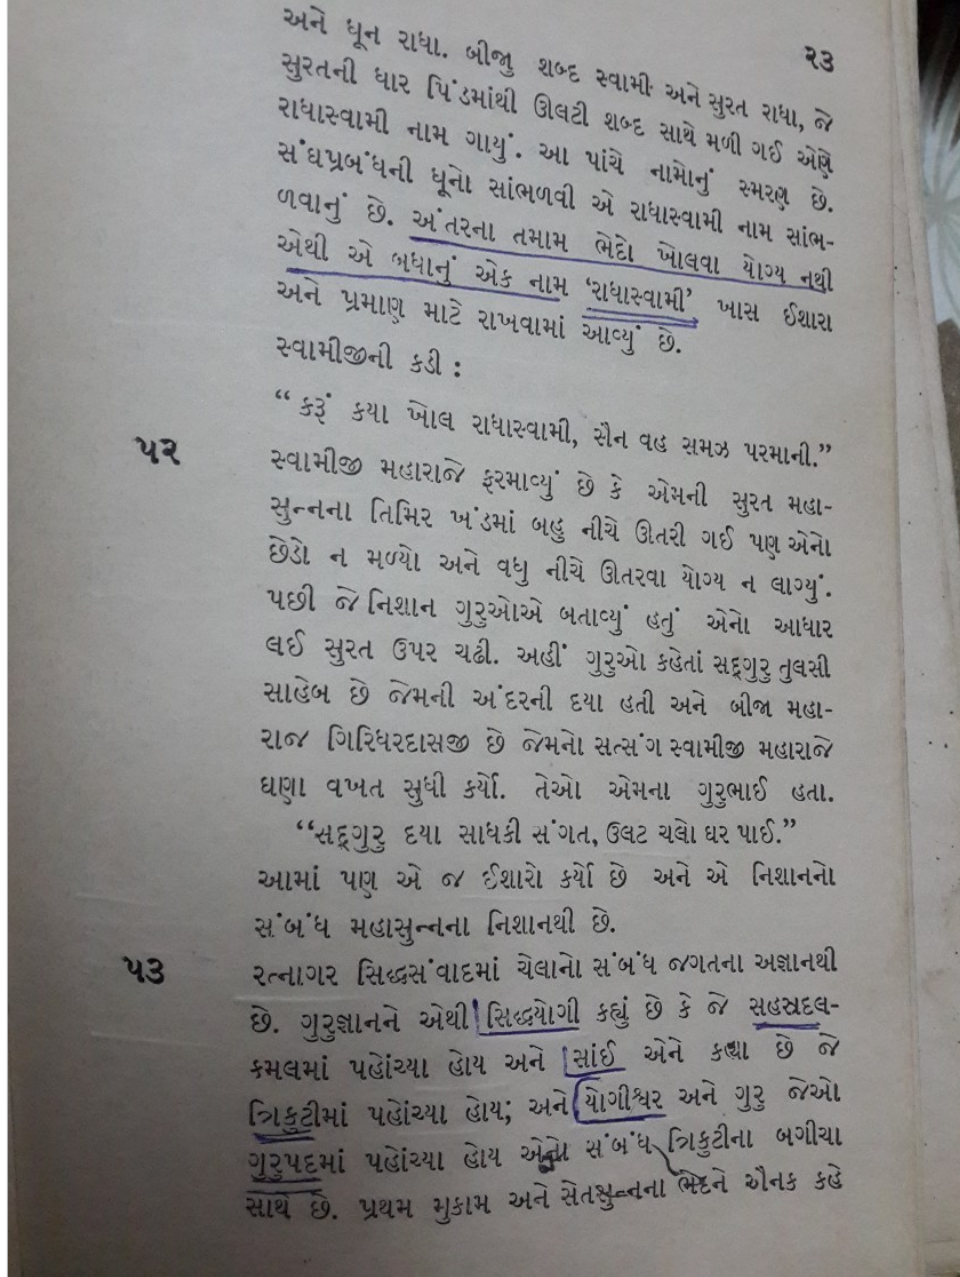 ૨૩
અને ધૂન રાધા. બીજુ શબ્દ સ્વામી અને સુરત રાધા, જે
સુરતની ધાર પિંડમાંથી ઊલટી શબ્દ સાથે મળી ગઈ એણે
રાધાસ્વામી નામ ગાયું. આ પાંચે નામોનું સ્મરણ છે.
સંઘપ્રબંધની ધૂનો સાંભળવી એ રાધાસ્વામી નામ સાંભ-
ળવાનું છે. અંતરના તમામ ભેદો ખોલવા યોગ્ય નથી
એથી એ બધાનું એક નામ ‘રાધાસ્વામી’ ખાસ ઈશારા
અને પ્રમાણ માટે રાખવામાં આવ્યું છે.
સ્વામીજીની કડી :
“કરૂં કયા ખોલ રાધાસ્વામી, સૈન વહ સમઝ પરમાની.”
૫૨ સ્વામીજી મહારાજે ફરમાવ્યું છે કે એમની સુરત મહા-
સુન્નના તિમિર ખંડમાં બહુ નીચે ઊતરી ગઈ પણ એનો
છેડો ન મળ્યો અને વધુ નીચે ઊતરવા યોગ્ય ન લાગ્યું.
પછી જે નિશાન ગુરુઓએ બતાવ્યું હતું એનો આધાર
લઈ સુરત ઉપર ચઢી. અહીં ગુરુઓ કહેતાં સદ્દગુરુ તુલસી
સાહેબ છે જેમની અંદરની દયા હતી અને બીજા મહા-
રાજ ગિરિધરદાસજી છે જેમનો સત્સંગ સ્વામીજી મહારાજે
ઘણા વખત સુધી કર્યો. તેઓ એમના ગુરુભાઈ હતા.
“સદ્દગુરુ દયા સાધકી સંગત, ઉલટ ચલો ઘર પાઈ.”
આમાં પણ એ જ ઈશારો કર્યો છે અને એ નિશાનનો
સંબંધ મહાસુન્નના નિશાનથી છે.
૫૩ રત્નાગર સિદ્ધસંવાદમાં ચેલાનો સંબંધ જગતના અજ્ઞાનથી
છે. ગુરુજ્ઞાનને એથી સિદ્ધયોગી કહ્યું છે કે જે સહસ્રદલ-
કમલમાં પહોંચ્યા હોય અને સાંઈ એને કહ્યા છે જે
ત્રિકુટીમાં પહોંચ્યા હોય; અને યોગીશ્વર અને ગુરુ જેઓ
ગુરુપદમાં પહોંચ્યા હોય એનો સંબંધ ત્રિકુટીના બગીચા
સાથે છે. પ્રથમ મુકામ અને સેતસુન્નના ભેદને ઐનક કહે